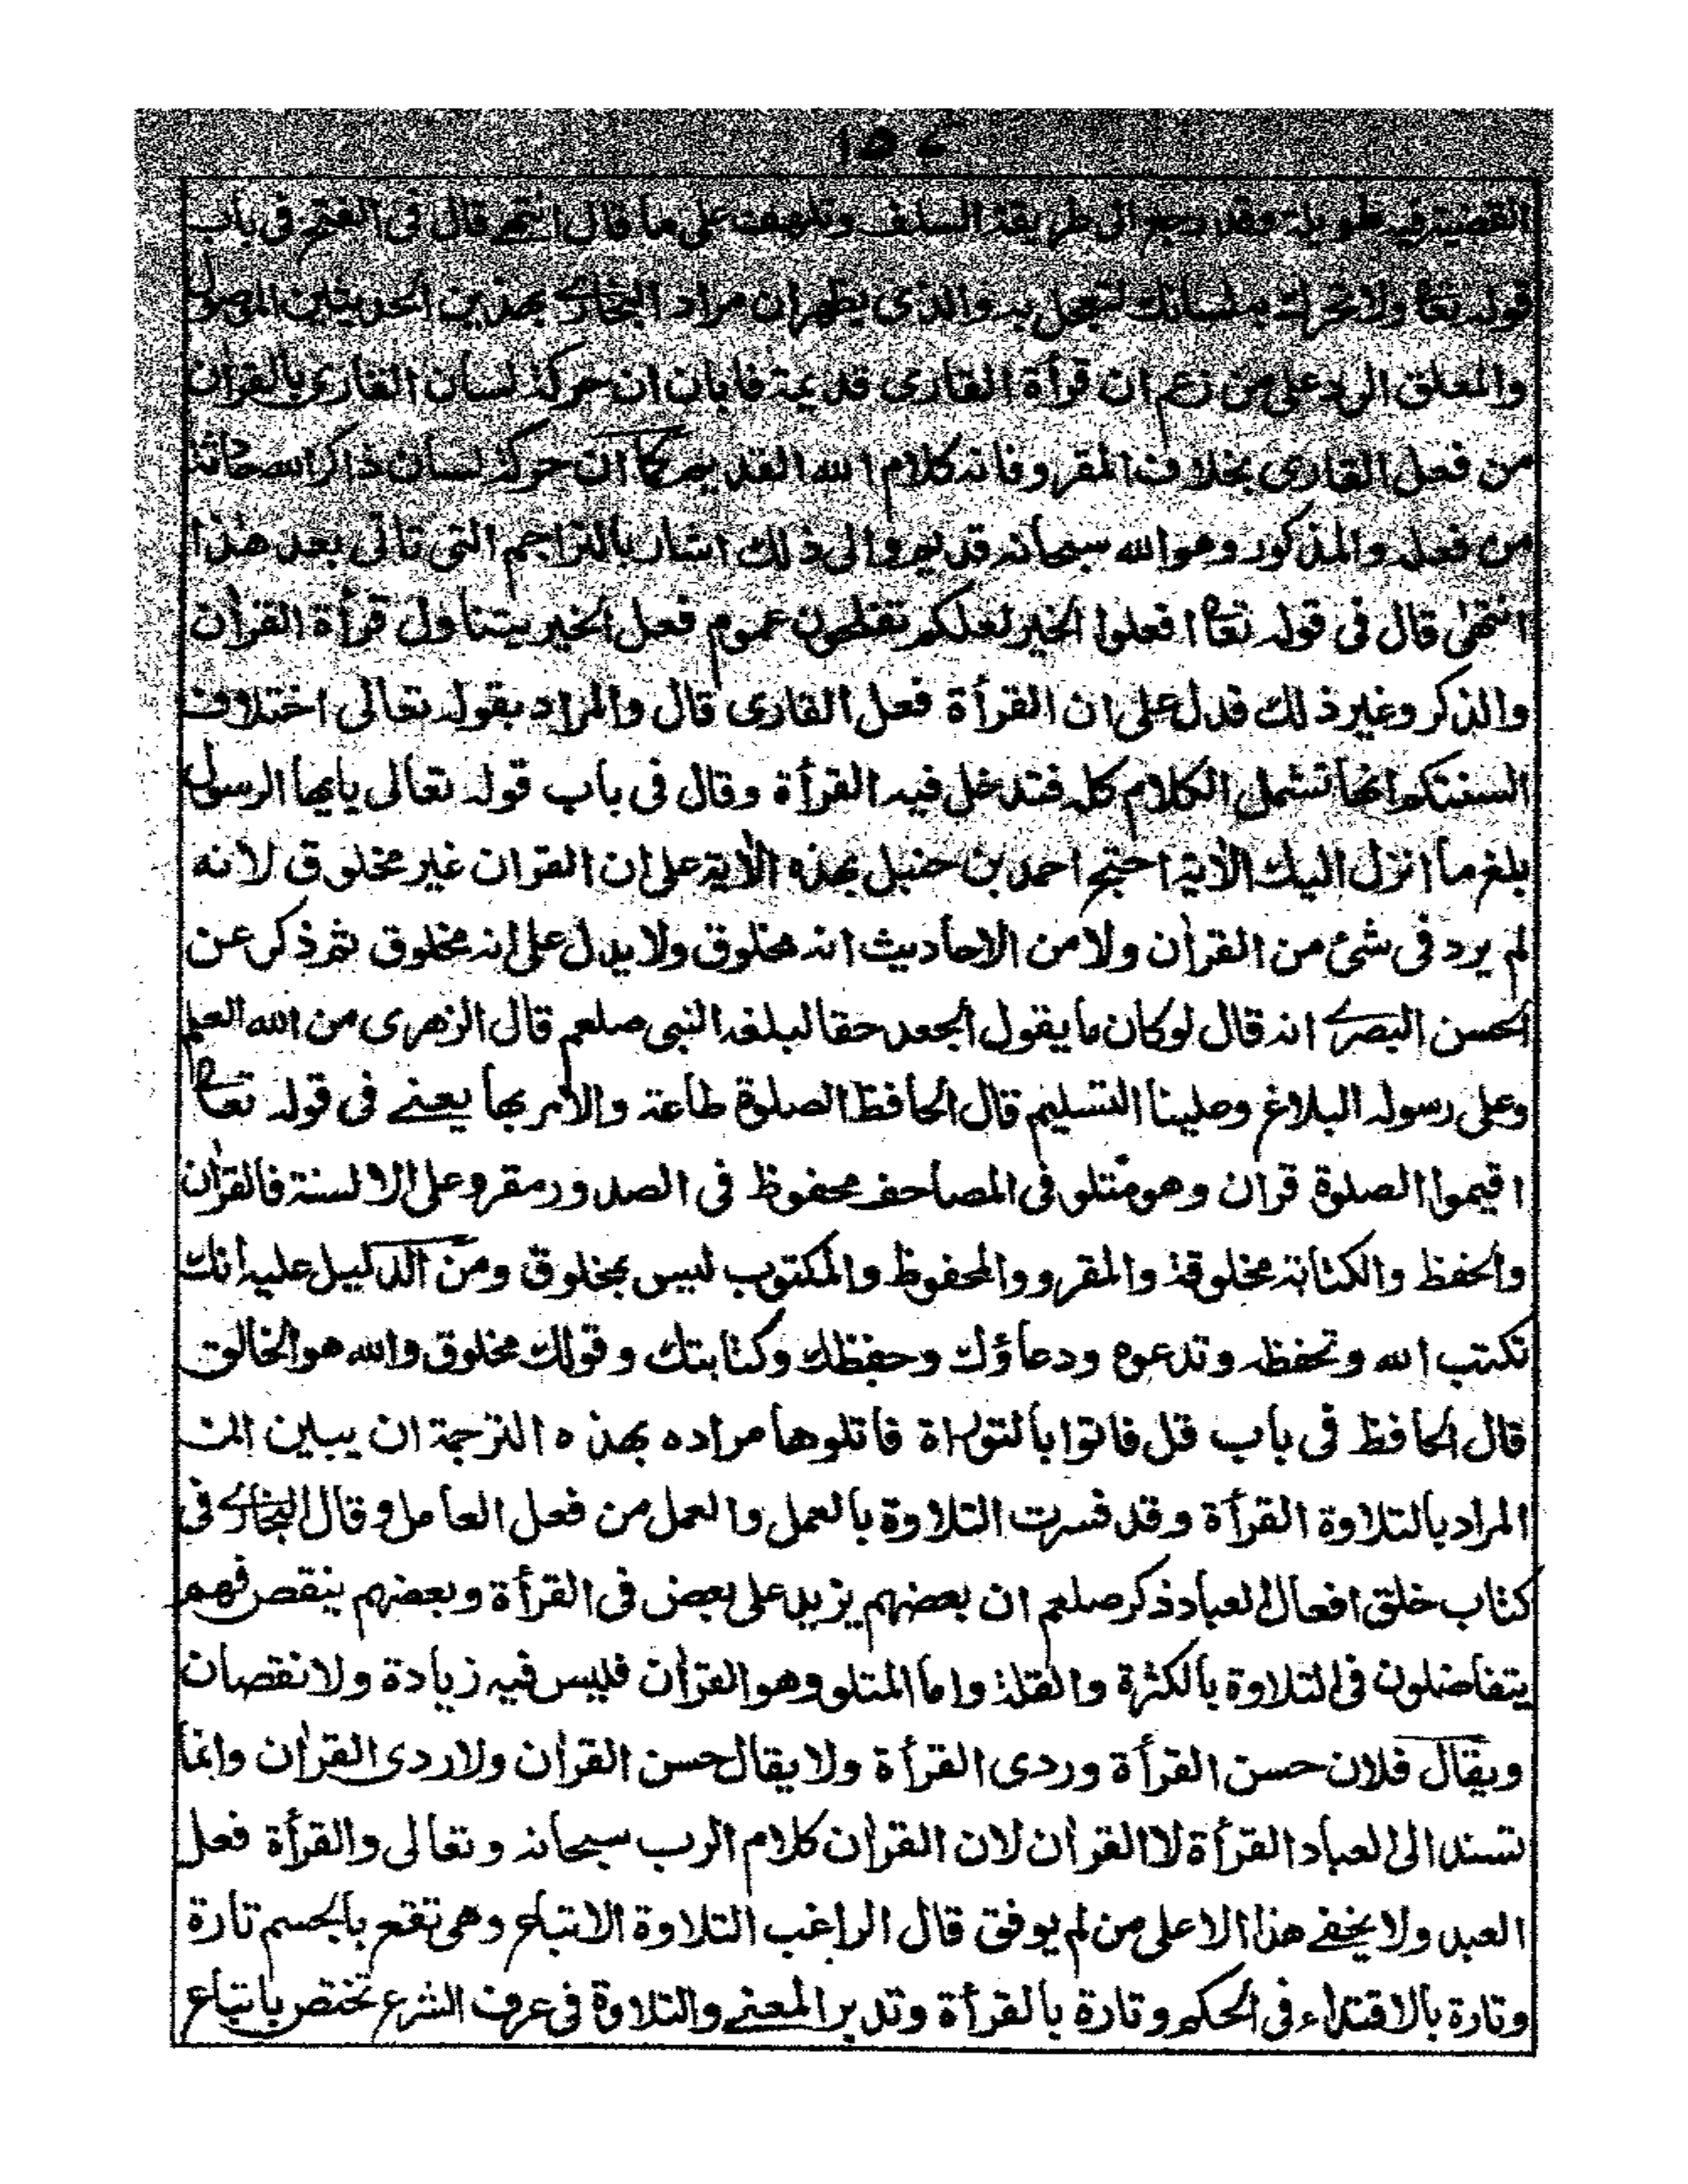 القضية فيه طويلة وقد رجع الى طريقة السلف وتلهفت على ما قال انتهى قال فى الفتح فى باب
قوله تعا ولا تحرك به لسانك لتعجل به والذى يظهر ان مراد البخارى بهذين الحديثين الموصول
والمعلق الرد على من زعم ان قرأة القارى قديمة فابان ان حركة لسان القارئ بالقران
من فعل القارى بخلاف المقرو فانه كلام الله القديم كما ان حركة لسان ذاكر الله حادثة
من فعله والمذكور وهو الله سبحانه قديم والى ذلك اشار بالتراجم التى تاتى بعد هذا
انتهى قال فى قوله تعا افعلوا الخير لعلكم تفلحون عموم فعل الخير يتناول قرأة القران
والذكر وغير ذلك فدل على ان القرأة فعل القارى قال والمراد بقوله تعالى اختلاف
السنتكم انها تشمل الكلام كله فتدخل فيه القرأة وقال فى باب قوله تعالى يايها الرسول
بلغ ما انزل اليك الاية احتج احمد بن حنبل بهذه الاية على ان القران غير مخلوق لانه
لم يرد فى شئ من القران ولا من الاحاديث انه مخلوق ولا يدل على انه مخلوق ثم ذكر عن
الحسن البصرى انه قال لو كان ما يقول الجعد حقا لبلغه النبى صلعم قال الزهرى من الله العلم
وعلى رسوله البلاغ وعلينا التسليم قال الحافظ الصلوة طاعة والامر بها يعنى فى قوله تعا
اقيموا الصلوة قران وهو متلو فى المصاحف محفوظ فى الصدور مقرو على الالسنة فالقران
والحفظ والكتابة مخلوقة والمقرو والمحفوظ والمكتوب ليس بمخلوق ومن الدليل عليه انك
تكتب الله وتحفظه وتدعوه ودعاؤك وحفظك وكتابتك وقولك مخلوق والله هو الخالق
قال الحافظ فى باب قل فاتوا بالتوراة فاتلوها مراده بهذه الترجمة ان يبين ان
المراد بالتلاوة القرأة وقد فسرت التلاوة بالعمل والعمل من فعل العامل وقال البخارى فى
كتاب خلق افعال العباد ذكر صلعم ان بعضهم يزيد على بعض فى القرأة وبعضهم ينقص فهم
يتفاضلون فى التلاوة بالكثرة والقلة واما المتلو وهو القران فليس فيه زيادة ولا نقصان
ويقال فلان حسن القرأة وردى القرأة ولا يقال حسن القران ولا ردى القران وانما
تسند الى العباد القرأة لا القران لان القران كلام الرب سبحانه وتعالى والقرأة فعل
العبد ولا يخفى هذا الا على من لم يوفق قال الراغب التلاوة الاتباع وهى تقع بالجسم تارة
وتارة بالاقتداء فى الحكم وتارة بالقرأة وتدبر المعنى والتلاوة فى عرف الشرع تختص باتباع